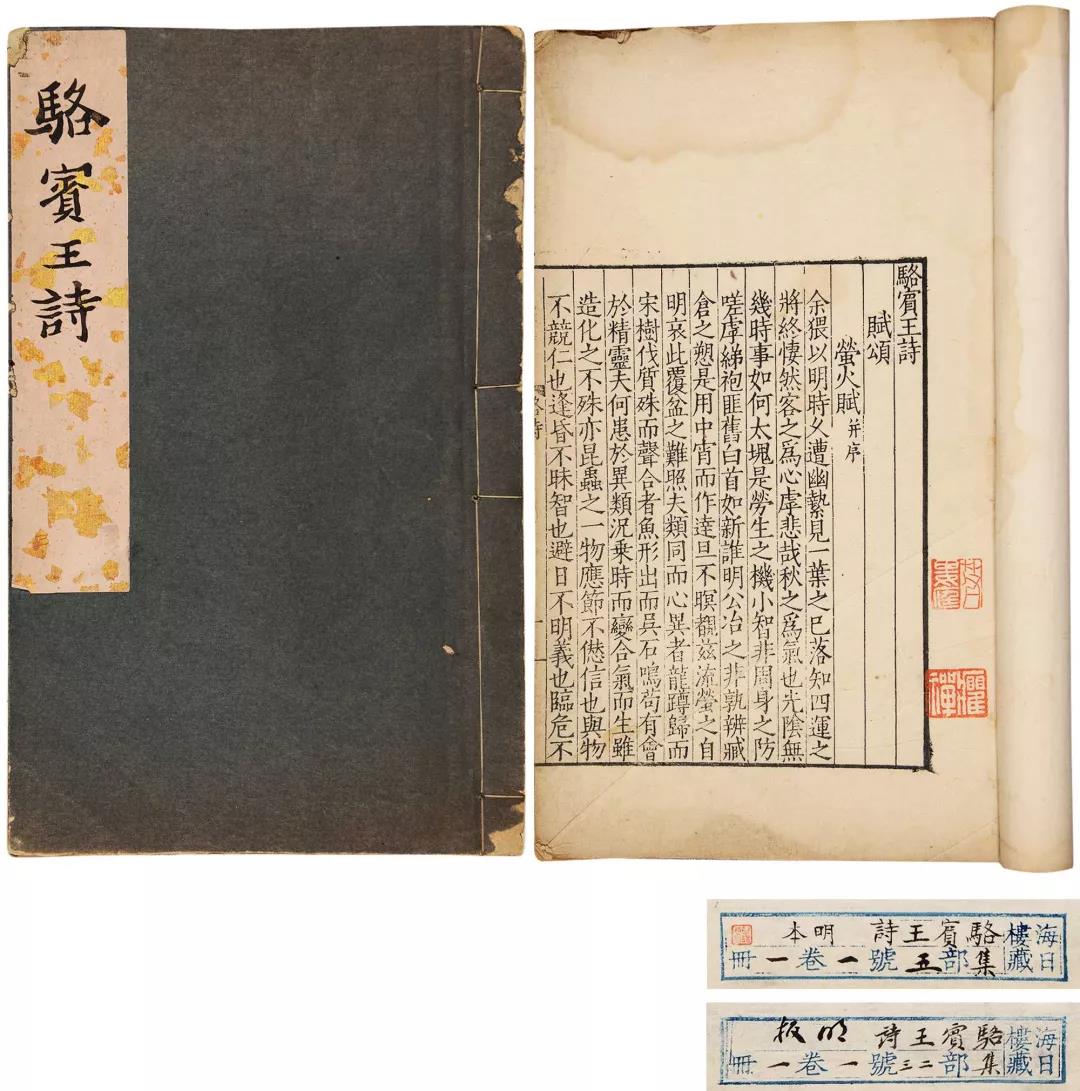 駱賓王詩
駱賓王詩
賦頌
螢火賦 并序
余猥以明時久遭幽縶見一葉之已落知四運之
將終悽然客之爲心虖悲哉秋之爲氣也光陰無
幾時事如何太塊是勞生之機小智非周身之防
嗟虖綈袍匪舊白首如新誰明公冶之非孰辨臧
倉之愬是用中宵而作達旦不瞑覩兹流螢之自
明哀此覆盆之難照夫類同而心異者龍蹲歸而
宋樹伐質殊而聲合者魚形出而吳石鳴苟有會
於精靈夫何患於異類況乘時而變合氣而生雖
造化之不殊亦昆蟲之一物應節不愆信也與物
不競仁也逢昏不昧智也避日不明義也臨危不
臞禪
海日樓藏
駱賓王詩 明本
集部五號一卷一冊
海日樓藏
駱賓王詩 明板
集部二三號一卷一冊